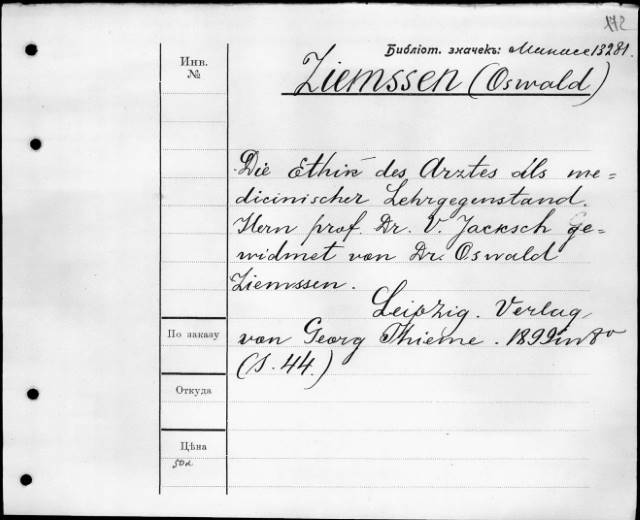 172
Библіот. значекъ: Манасе 13281.
Инв.
№
Ziemssen (Oswald)
Die Ethik des Arztes als me-
dicinischer Lehrgegenstand.
Hern prof. Dr. V. Jacksch ge-
widmet von Dr. Oswald
Ziemssen.
Leipzig. Verlag
По заказу
von Georg Thieme. 1899 in 8º
(S. 44.)
Откуда
Цѣна
50к